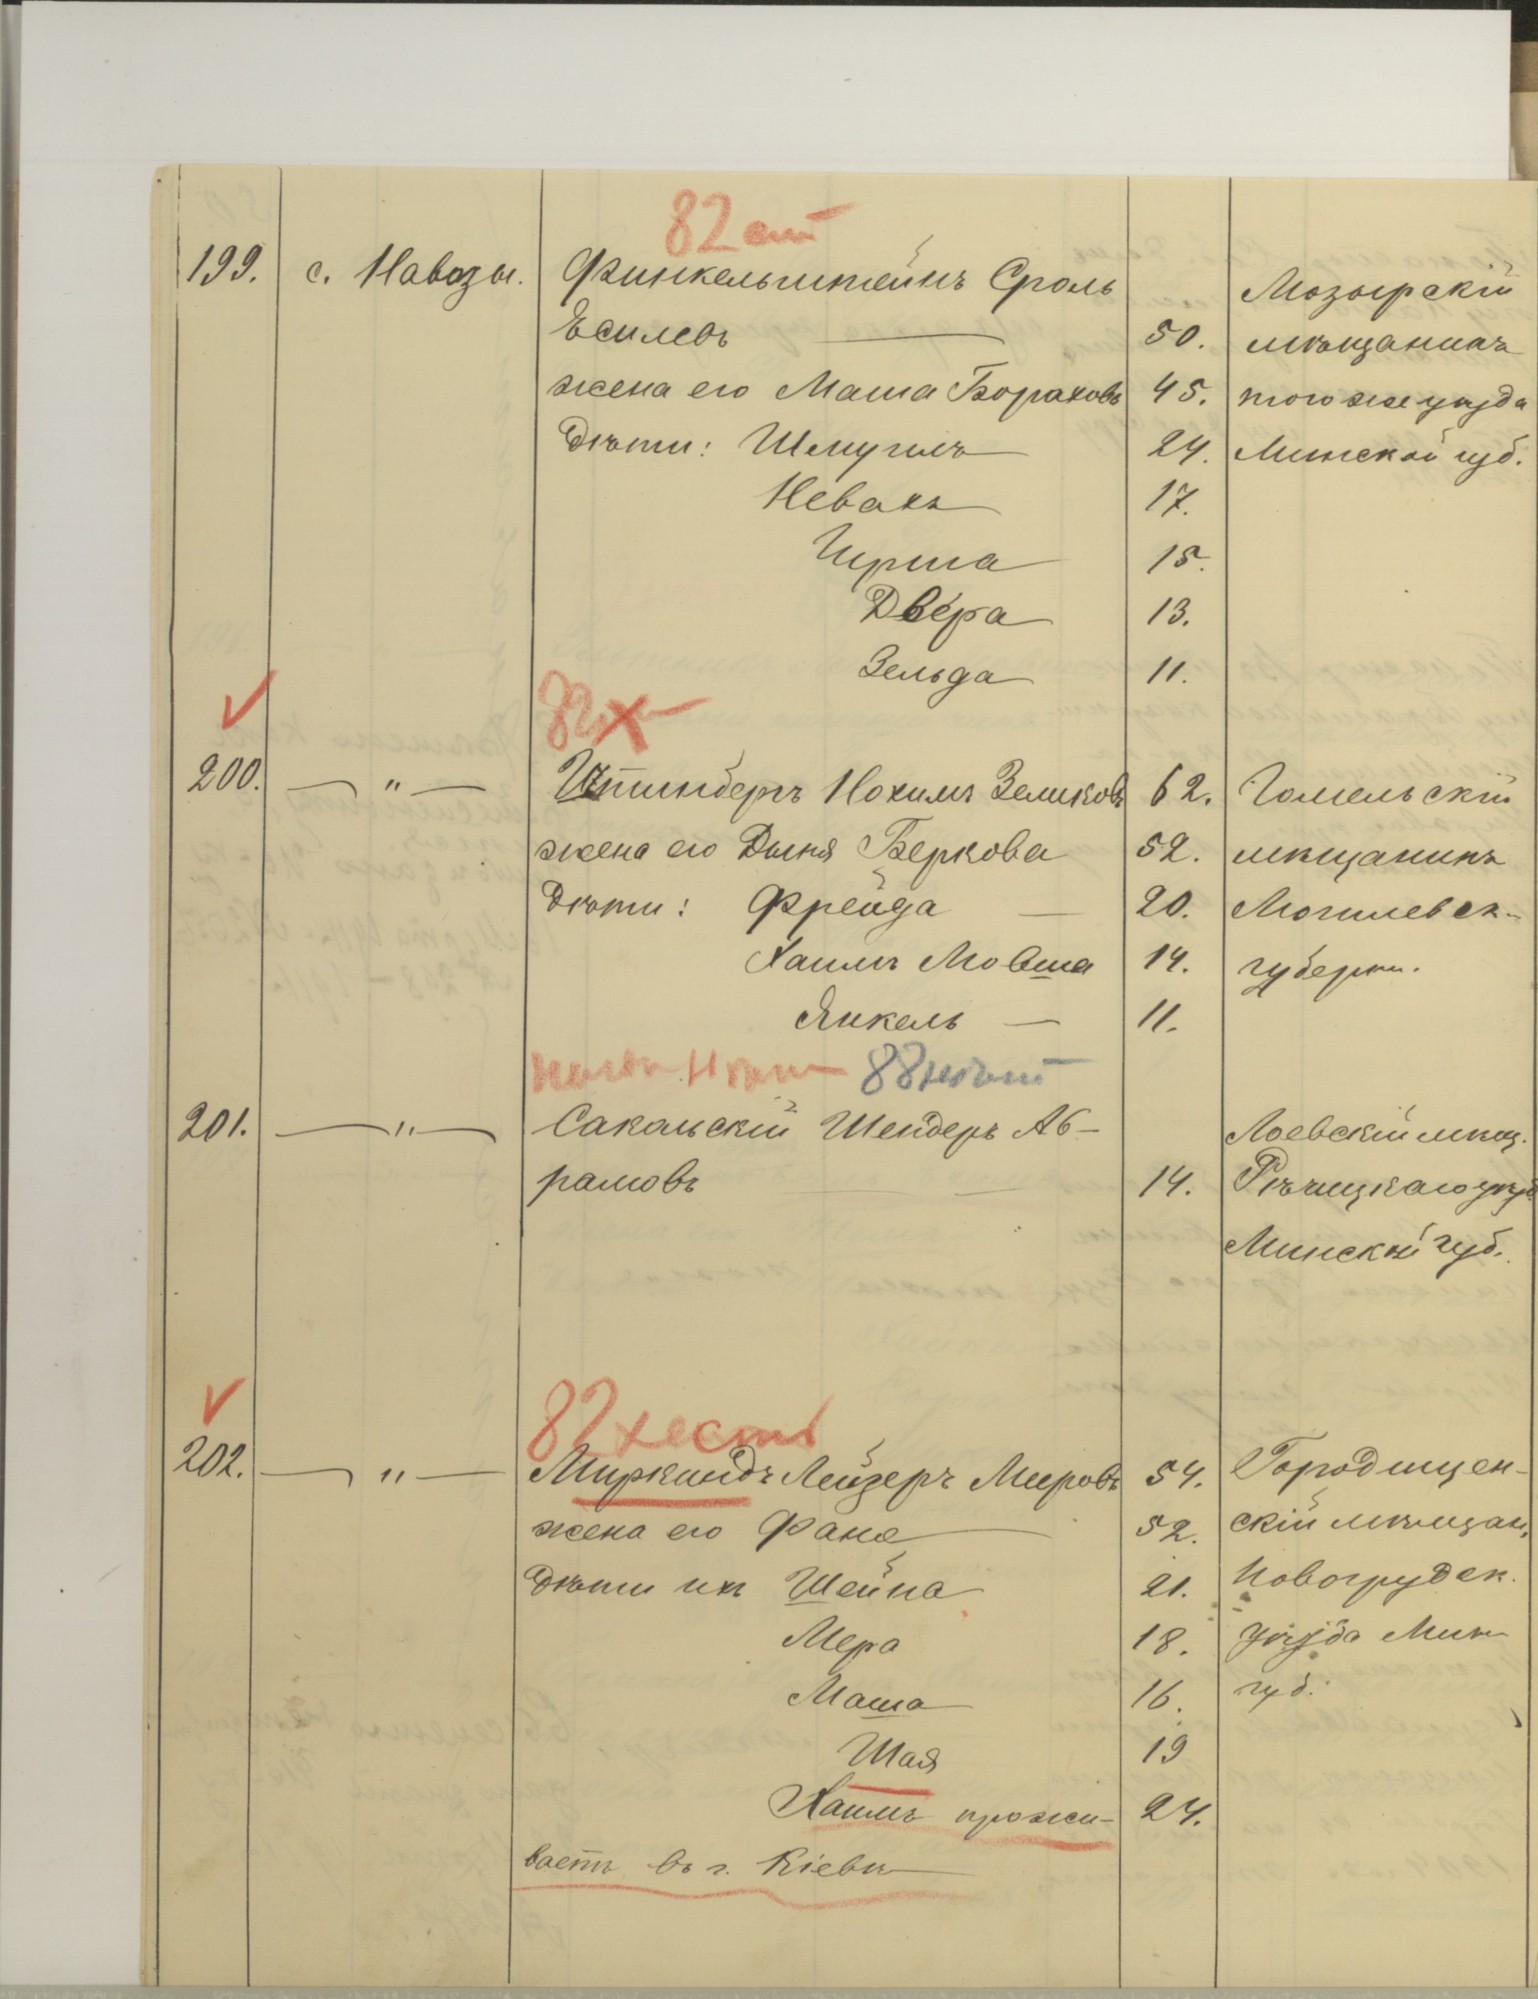 82 ст
199. с. Навозы. Финкельштейнъ Сроль Мозырскій
Есилевъ 50. мѣщанинъ
жена его Маша Бораховъ 45. того же уѣзда
Дѣти: Шмуилъ 24. Минской губ.
Невахъ 17.
Гирша 15.
Двера 13.
Зельда 11.
82
200. — " — Нохимъ Зеликовъ 62. Гомельскій
жена его Дыня Беркова 52. мѣщанинъ
Дѣти: Фрейда — 20. Могилевск-
Хаимъ Мовша 14. губерн.
Янкель — 11.
88 нѣт
201. — " — Сакольскій Шендеръ Аб- Лоевскій мѣщ.
рамовъ 14. Рѣчицкаго уѣзд.
Минской губ.
82 х есть
202. — " — Миркиндъ Лейзеръ Мееровъ 54. Городищен-
жена его Фаня 52. скій мѣщан.
Дѣти ихъ Шейна 21. Новогрудск.
Мера 18. уѣзда Мин
Маша 16. губ.
Шая 19
Хаимъ прожи- 24.
ваетъ въ г. Кіевѣ